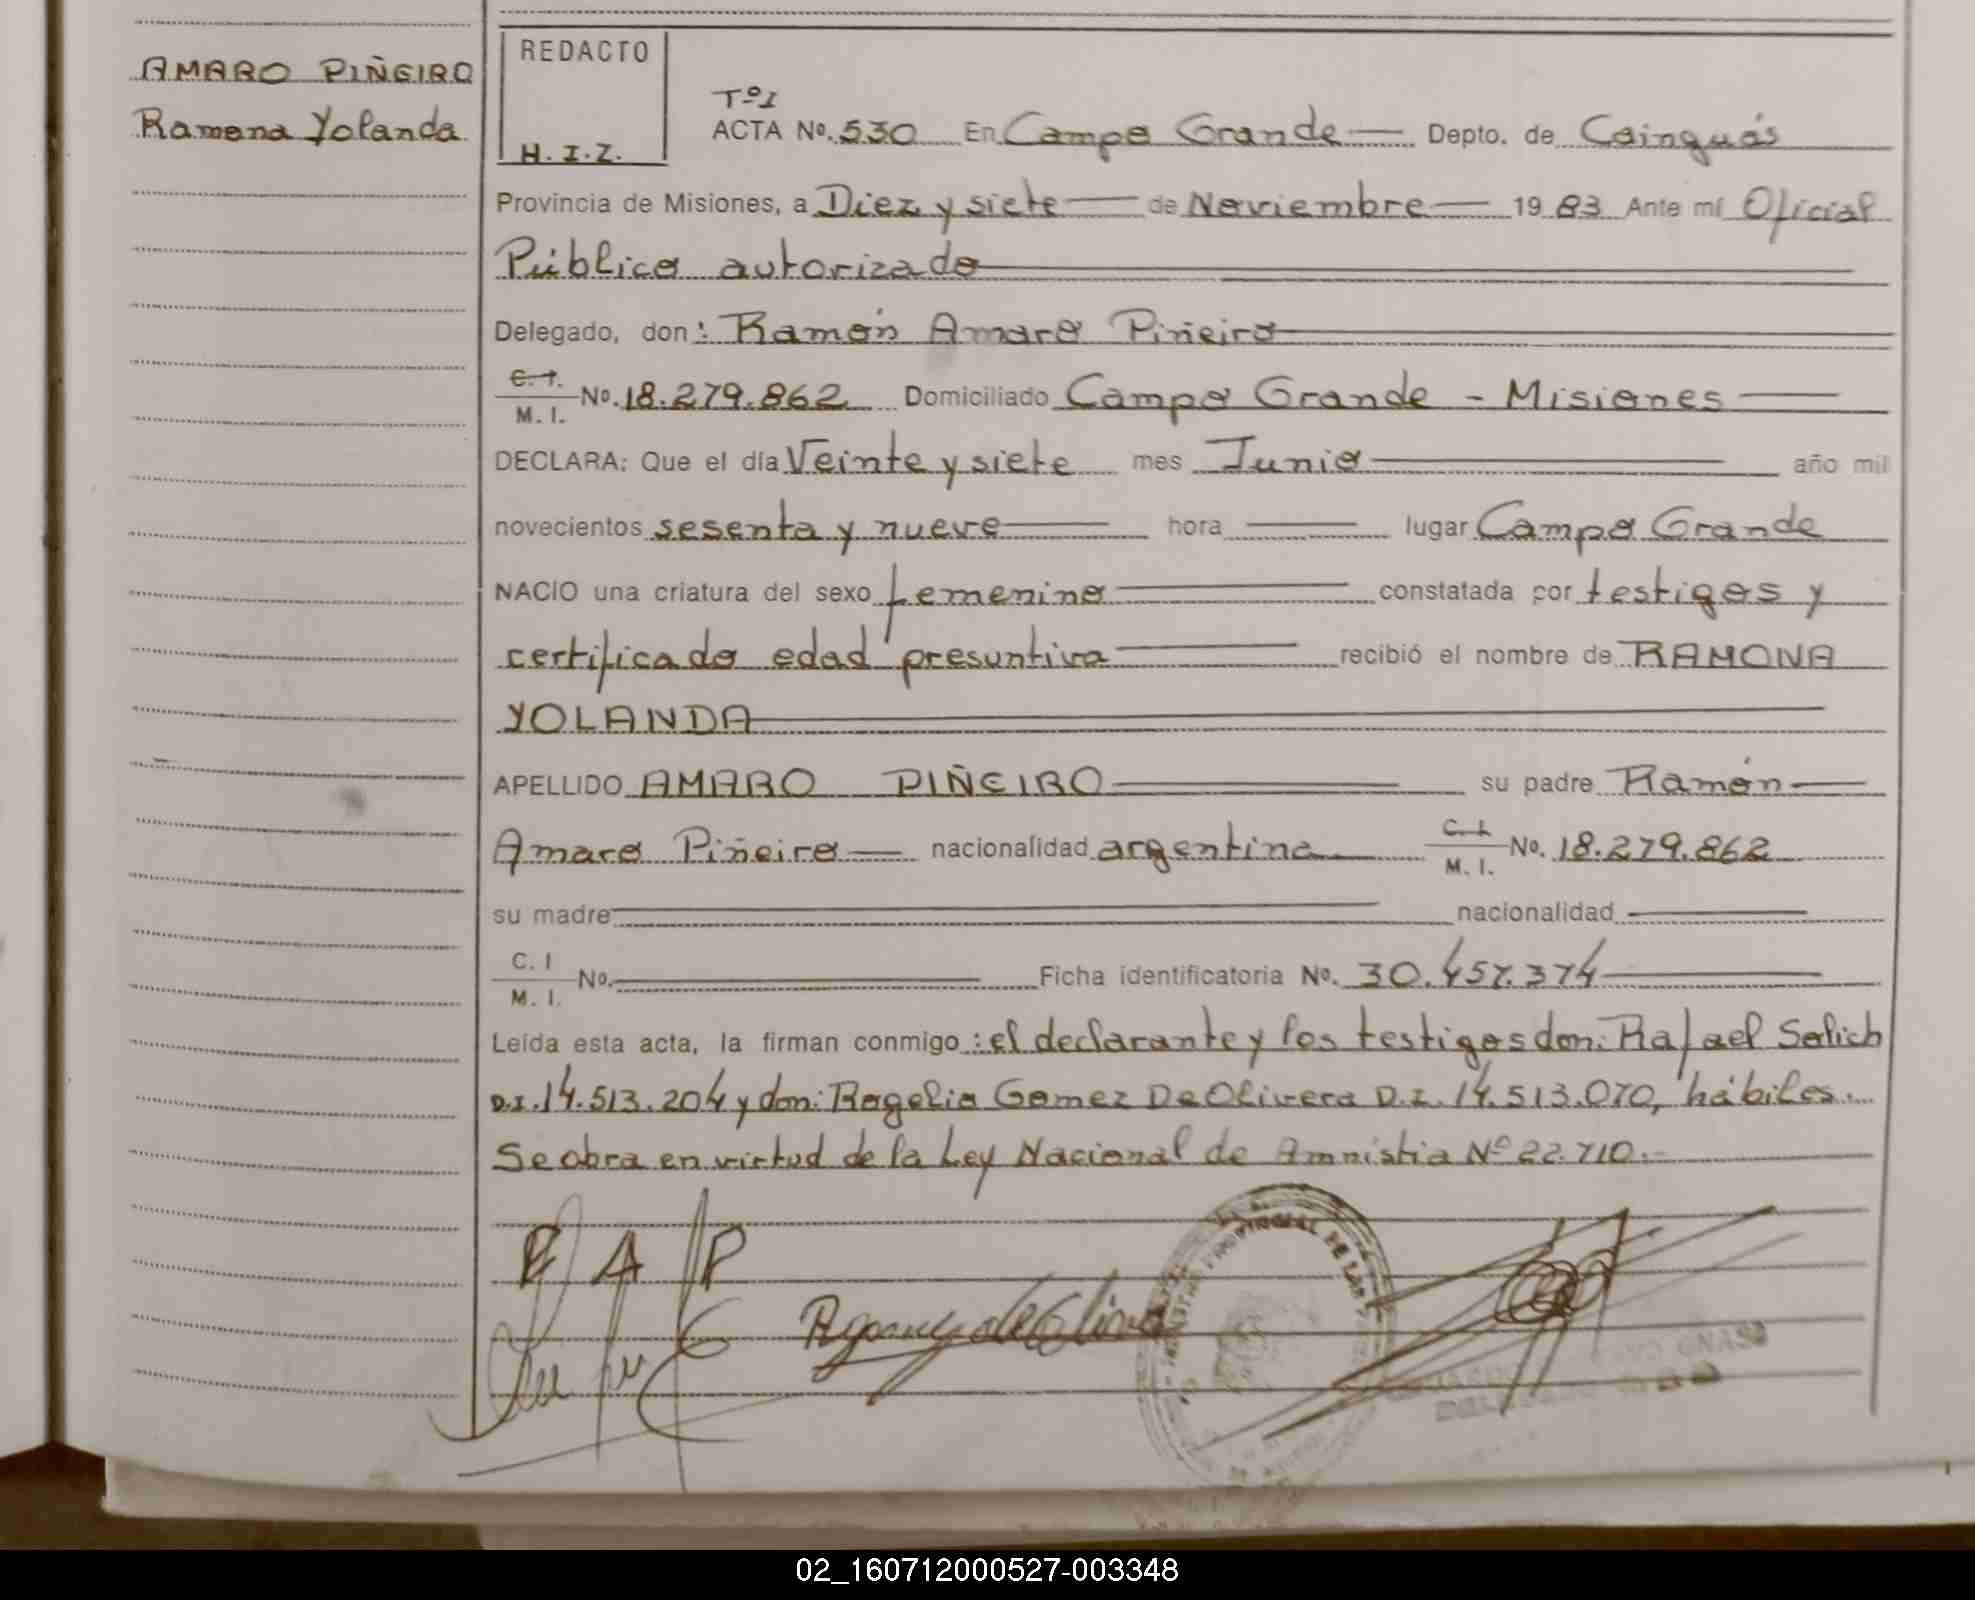 AMARO PIÑEIRO
Ramona Yolanda
REDACTO
H. I. Z.
Tº I
ACTA No. 530 En Campo Grande Depto. de Cainguás
Provincia de Misiones, a Diez y siete de Noviembre 19 83 Ante mí Oficial
Público autorizado
Delegado, don: Ramón Amaro Piñeiro
C. I.
M. I. No. 18.279.862 Domiciliado Campo Grande - Misiones
DECLARA: Que el día Veinte y siete mes Junio año mil
novecientos sesenta y nueve hora lugar Campo Grande
NACIO una criatura del sexo femenino constatada por testigos y
certificado edad presuntiva recibió el nombre de RAMONA
YOLANDA
APELLIDO AMARO PIÑEIRO su padre Ramón
Amaro Piñeiro nacionalidad argentina C. I. M. I. No. 18.279.862
su madre nacionalidad
C. I
M. I. No. Ficha identificatoria No. 30.457.374
Leída esta acta, la firman conmigo: el declarante y los testigos don: Rafael Solich
D.I. 14.513.204 y don: Rogelio Gomez De Olivera D.I. 14.513.070, hábiles.
Se obra en virtud de la Ley Nacional de Amnistia Nº 22.710.-
R A P
PROVINCIAL DE LAS
02_160712000527-003348